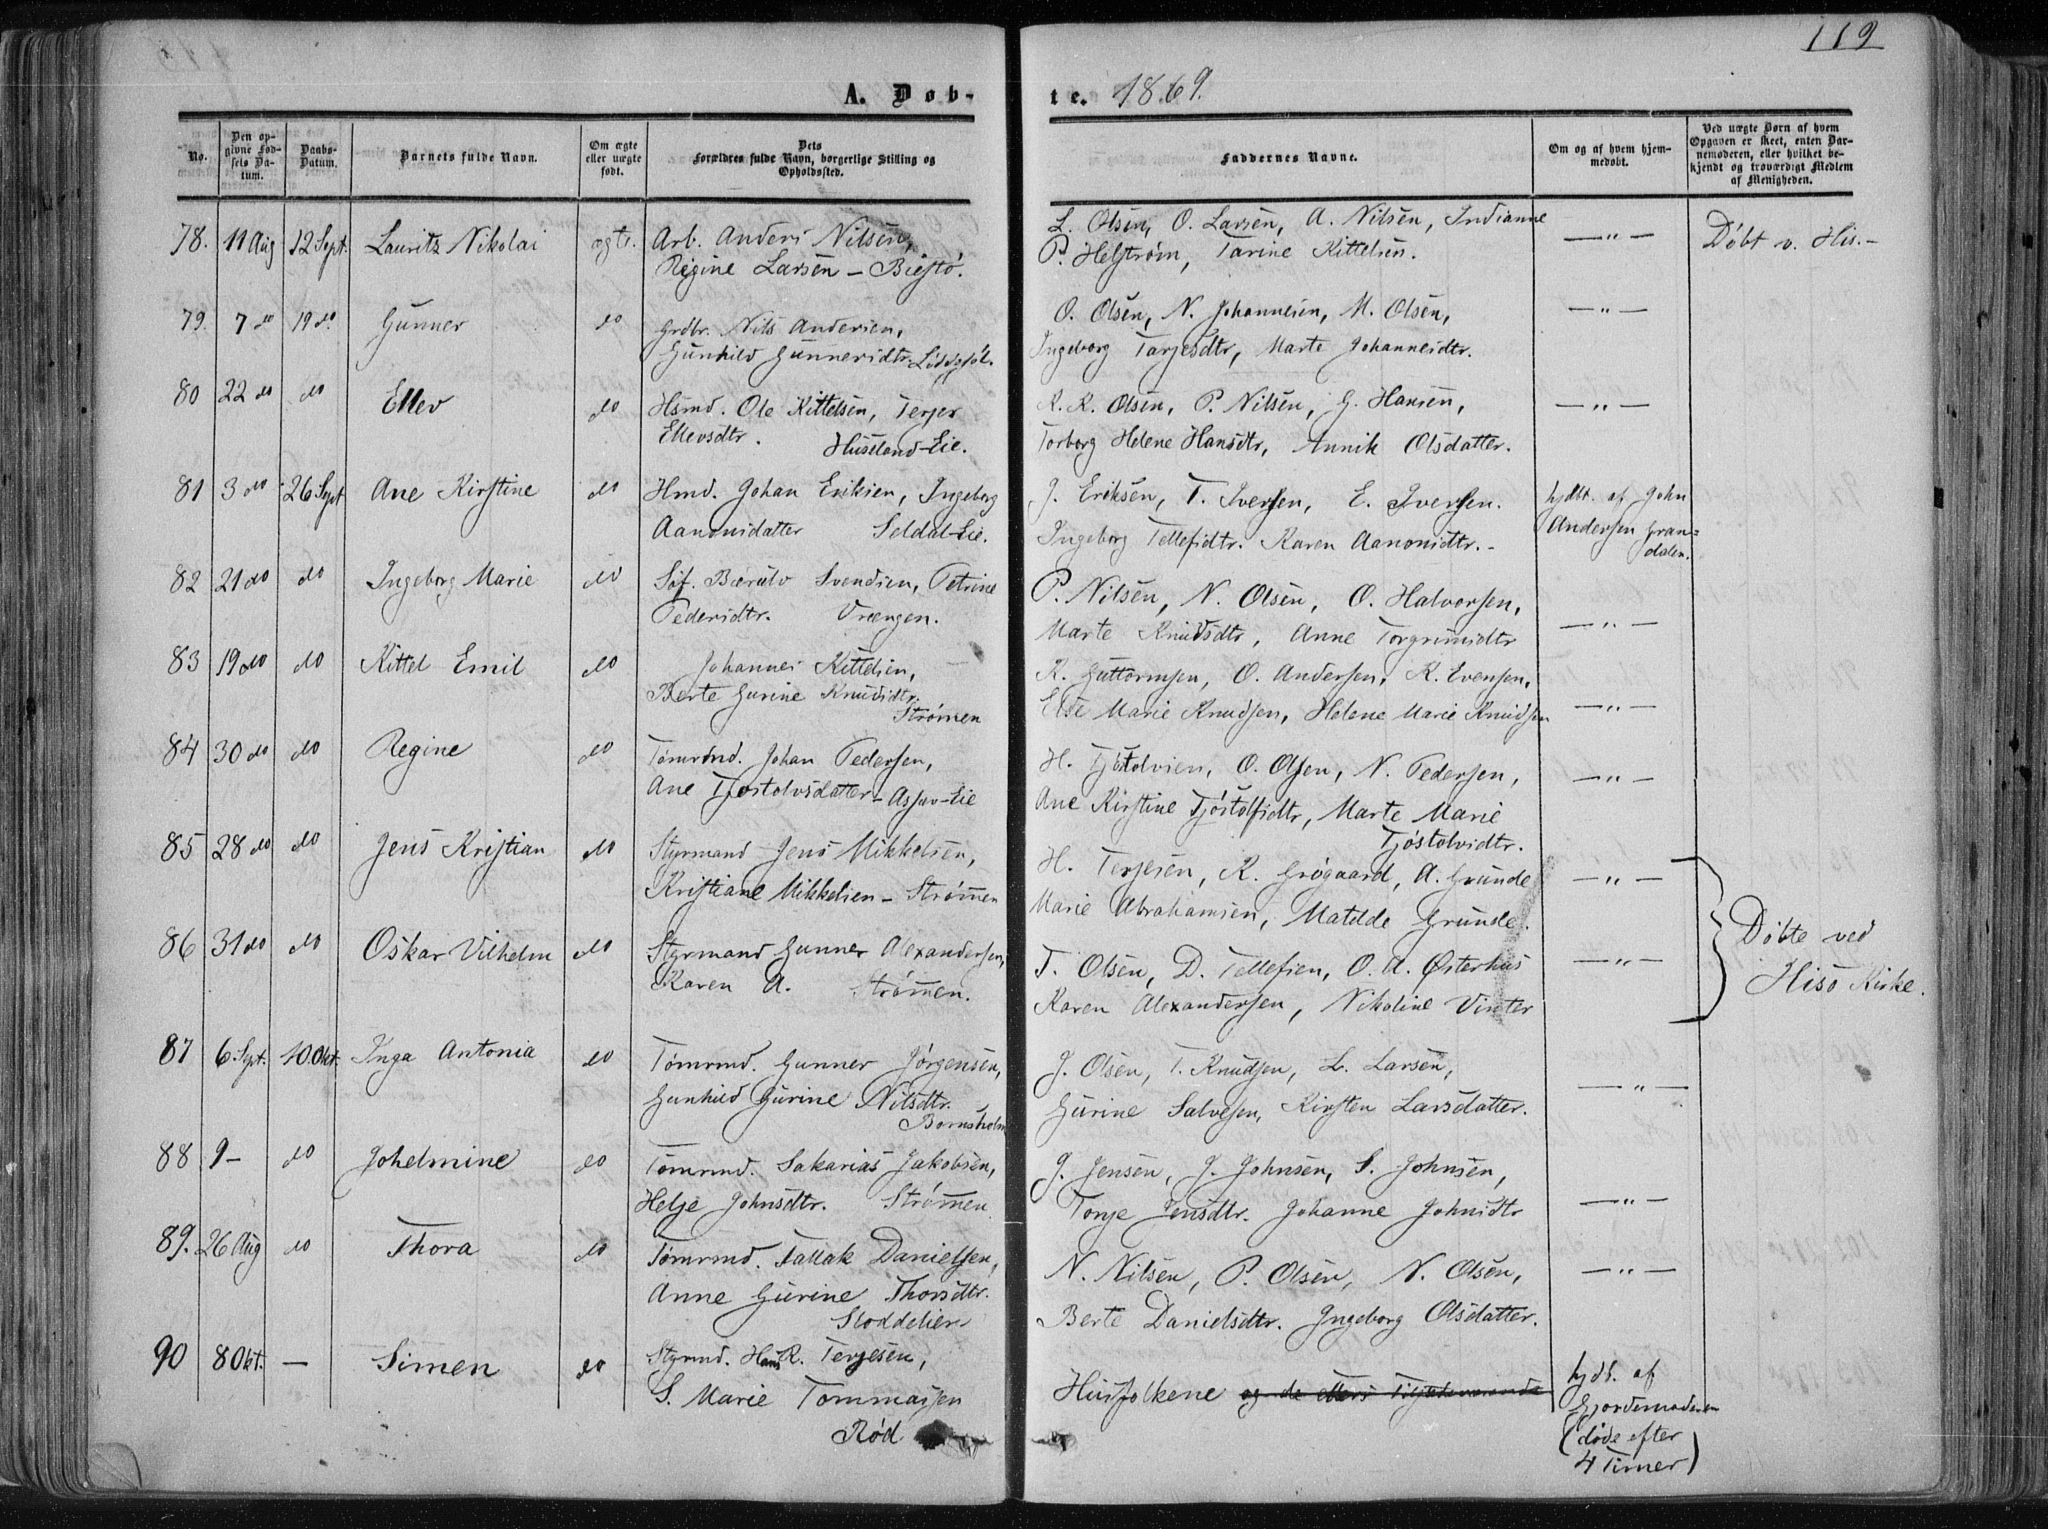 119
A. Døb-
te. 1869.
No.
Den op-
givne Fød-
sels Da-
tum.
Daabs-
Datum.
Barnets fulde Navn.
Om ægte
eller uægte
født.
Dets
Forældres fulde Navn, borgerlige Stilling og
Opholdssted.
Faddernes Navne.
Om og af hvem hjem-
medøbt.
Ved uægte Børn af hvem
Opgaven er skeet, enten Bar-
nemoderen, eller hvilket be-
kjendt og troværdigt Medlem
af Menigheden.
78. 11 Aug 12 Sept. Lauritz Nikolai ægte. Arb. Anders Nilsen,
Regine Larsen - Biestø.
L. Olsen, O. Larsen, A. Nilsen, Indianne
P. Helstrøm, Tarine Kittelsen.
— " — Døbt v. His.-
79. 7 do 19 do. Gunner do Grdbr. Nils Andersen,
Gunhild Gunnersdtr.
O. Olsen, N. Johannesen, M. Olsen,
Ingeborg Tarjesdtr, Marte Johannesdtr.
— " —
80 22 do do Ellev do Hsmd. Ole Kittelsen, Terjer
Ellevsdtr. Huseland-Eie.
K. K. Olsen, P. Nilsen, G. Hansen,
Torborg Helene Hansdtr, Annik Olsdatter.
— " —
81 3 do 26 Sept Ane Kirstine do Hmd. Johan Eriksen, Ingeborg
Aanonsdatter Seldal-Eie.
J. Eriksen, T. Iversen, E. Iversen.
Ingeborg Tellefsdtr. Karen Aanonsdtr.-
hjdbt. af John
Andersen Gran-
dalen.
82 21 do do Ingeborg Marie do Søf. Bærulv Svendsen, Petrine
Pedersdtr. Vrængen.
P. Nilsen, N. Olsen, O. Halvorsen,
Marte Knudsdtr, Anne Torgrimsdtr
— " —
83 19 do do Kittel Emil do Johannes Kittelsen,
Berte Gurine Knudsdtr.
Strømen
K. Guttormsen, O. Andersen, K. Evensen,
Else Marie Knudsen, Helene Marie Knudsen
— " —
84 30 do do Regine do Tømrmd. Johan Pedersen,
Ane Tjøstolvsdatter - Assav-Eie
H. Tjøstolvsen, O. Olsen, N. Pedersen,
Ane Kirstine Tjøstolfsdtr, Marte Marie
Tjøstolvsdtr.
— " —
85 28 do do Jens Kristian do Styrmand Jens Mikkelsen,
Kristiane Mikkelsen - Strømen
H. Terjesen, K. Grøgaard, A. Grunde
Marie Abrahamsen, Matilde Grunde.
— " —
86 31 do do Oskar Vilhelm do Styrmand Gunner Alexandersen,
Karen A. Strømen.
T. Olsen, D. Tellefsen, O. A. Østerhus
Karen Alexandersen, Nikoline Vinter
— " —
Døbte ved
Hisø Kirke.
87 6 Sept. 10 Okt. Inga Antonia do Tømrmd. Gunner Jørgensen,
Gunhild Gurine Nilsdtr.
Bornsholm
J. Olsen, T. Knudsen, L. Larsen,
Gurine Salvesen, Kirsten Larsdatter.
— " —
88 9- do Johelmine do Tømrmd. Sakarias Jakobsen,
Helje Johnsdtr. Strømen
J. Jensen, J. Johnsen, S. Johnsen,
Tonje Jensdtr. Johanne Johnsdtr
— " —
89. 26 Aug do Thora do Tømrmd. Tallak Danielsen,
Anne Gurine Thorsdtr.
N. Nilsen, P. Olsen, N. Olsen,
Berte Danielsdtr. Ingeborg Olsdatter.
— " —
90 8 Okt. — Simen do Styrmd. Hans R. Terjesen,
S. Marie Tommassen
Rød
Husfolkene og de ellers Tilstedeværende
hjdt. af
Gjordemoderen
(døde efter
4 Timer)